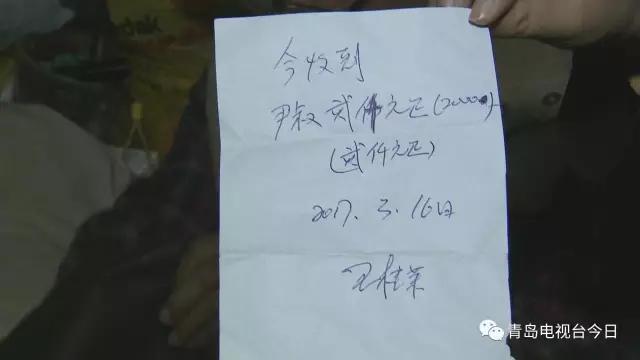 今收到
尹叔贰仟元正(2000)
(贰仟元正)
2017.3.16日
王桂荣
青岛电视台今日